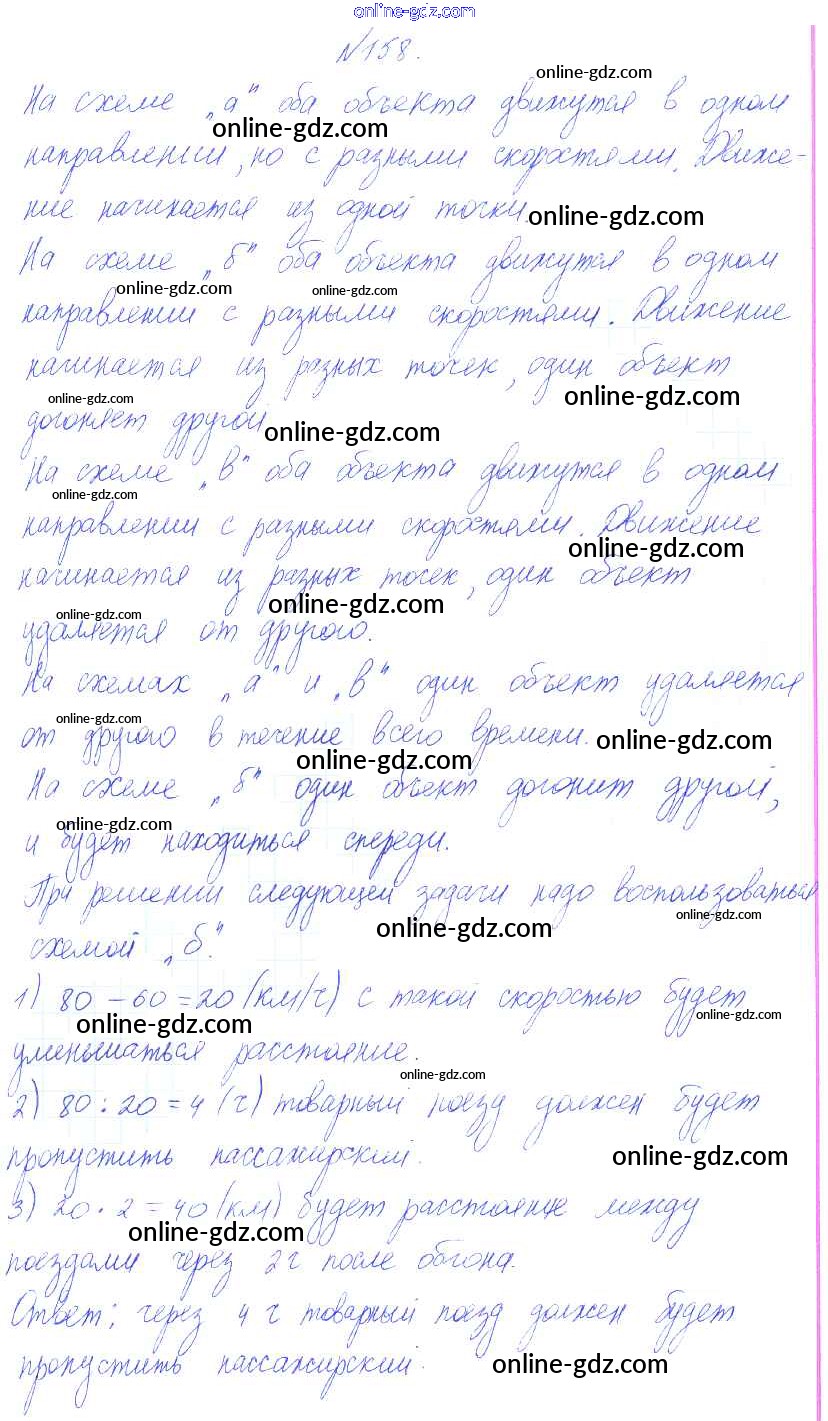 online-gdz.com
№158.
online-gdz.com
На схеме „а" оба объекта движутся в одном
online-gdz.com
направлении, но с разными скоростями. Движе-
ние начинается из одной точки.
online-gdz.com
На схеме „б" оба объекта движутся в одном
online-gdz.com online-gdz.com
направлении с разными скоростями. Движение
начинается из разных точек, один объект
online-gdz.com online-gdz.com
догоняет другой.
online-gdz.com
На схеме „в" оба объекта движутся в одном
online-gdz.com
направлении с разными скоростями. Движение
online-gdz.com
начинается из разных точек, один объект
online-gdz.com
online-gdz.com
удаляется от другого.
На схемах „а" и „в" один объект удаляется
online-gdz.com
от другого в течение всего времени.
online-gdz.com
online-gdz.com
На схеме „б" один объект догонит другой,
online-gdz.com
и будет находиться спереди.
При решении следующей задачи надо воспользоваться
online-gdz.com
online-gdz.com
схемой „б".
1) 80 – 60 = 20 (км/ч) с такой скоростью будет
online-gdz.com
online-gdz.com
уменьшаться расстояние.
online-gdz.com
2) 80 : 20 = 4 (ч) товарный поезд должен будет
пропустить пассажирский.
online-gdz.com
3) 20 · 2 = 40 (км) будет расстояние между
online-gdz.com
поездами через 2 ч после обгона.
Ответ: через 4 ч товарный поезд должен будет
пропустить пассажирский.
online-gdz.com